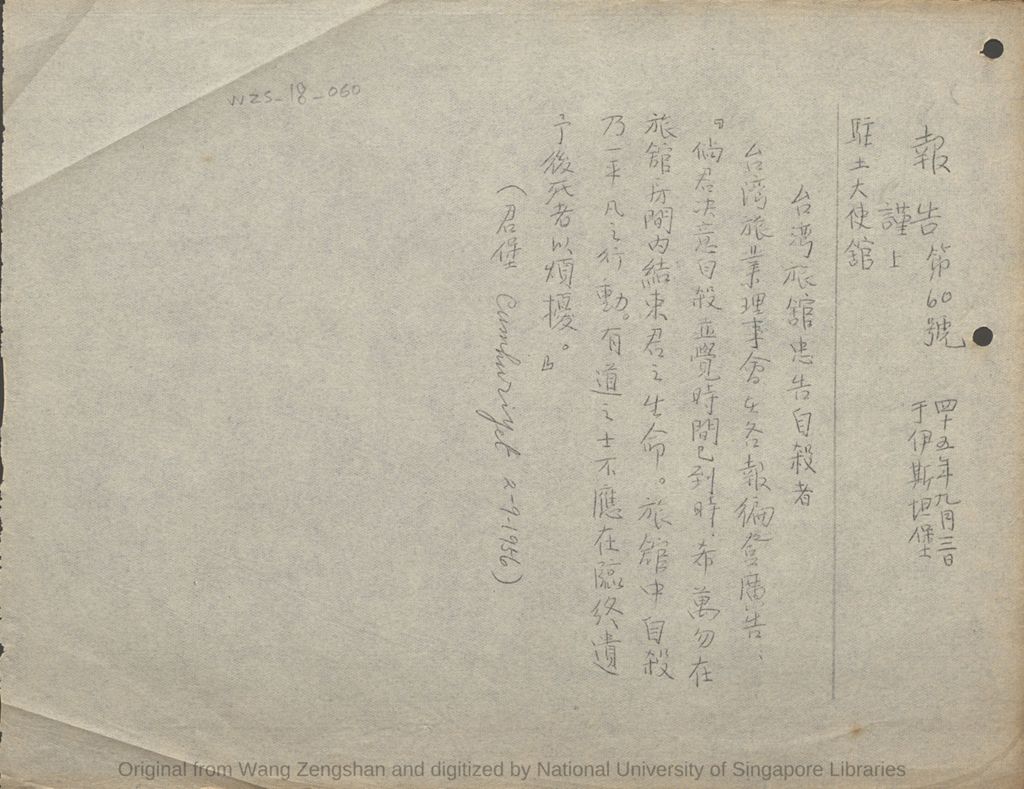 報告第60號
四十五年九月三日
于伊斯坦堡
謹上
駐土大使館
台湾旅舘忠告自殺者
台湾旅業理事會在各報徧登廣告、
『倘君决意自殺並覺時間已到時、希萬勿在
旅舘房間内結束君之生命。旅舘中自殺
乃一平凡之行動。有道之士不應在臨終遺
予後死者以煩擾。』
(君堡 Cumhuriyet 2-9-1956)
WZS_18_060
Original from Wang Zengshan and digitized by National University of Singapore Libraries